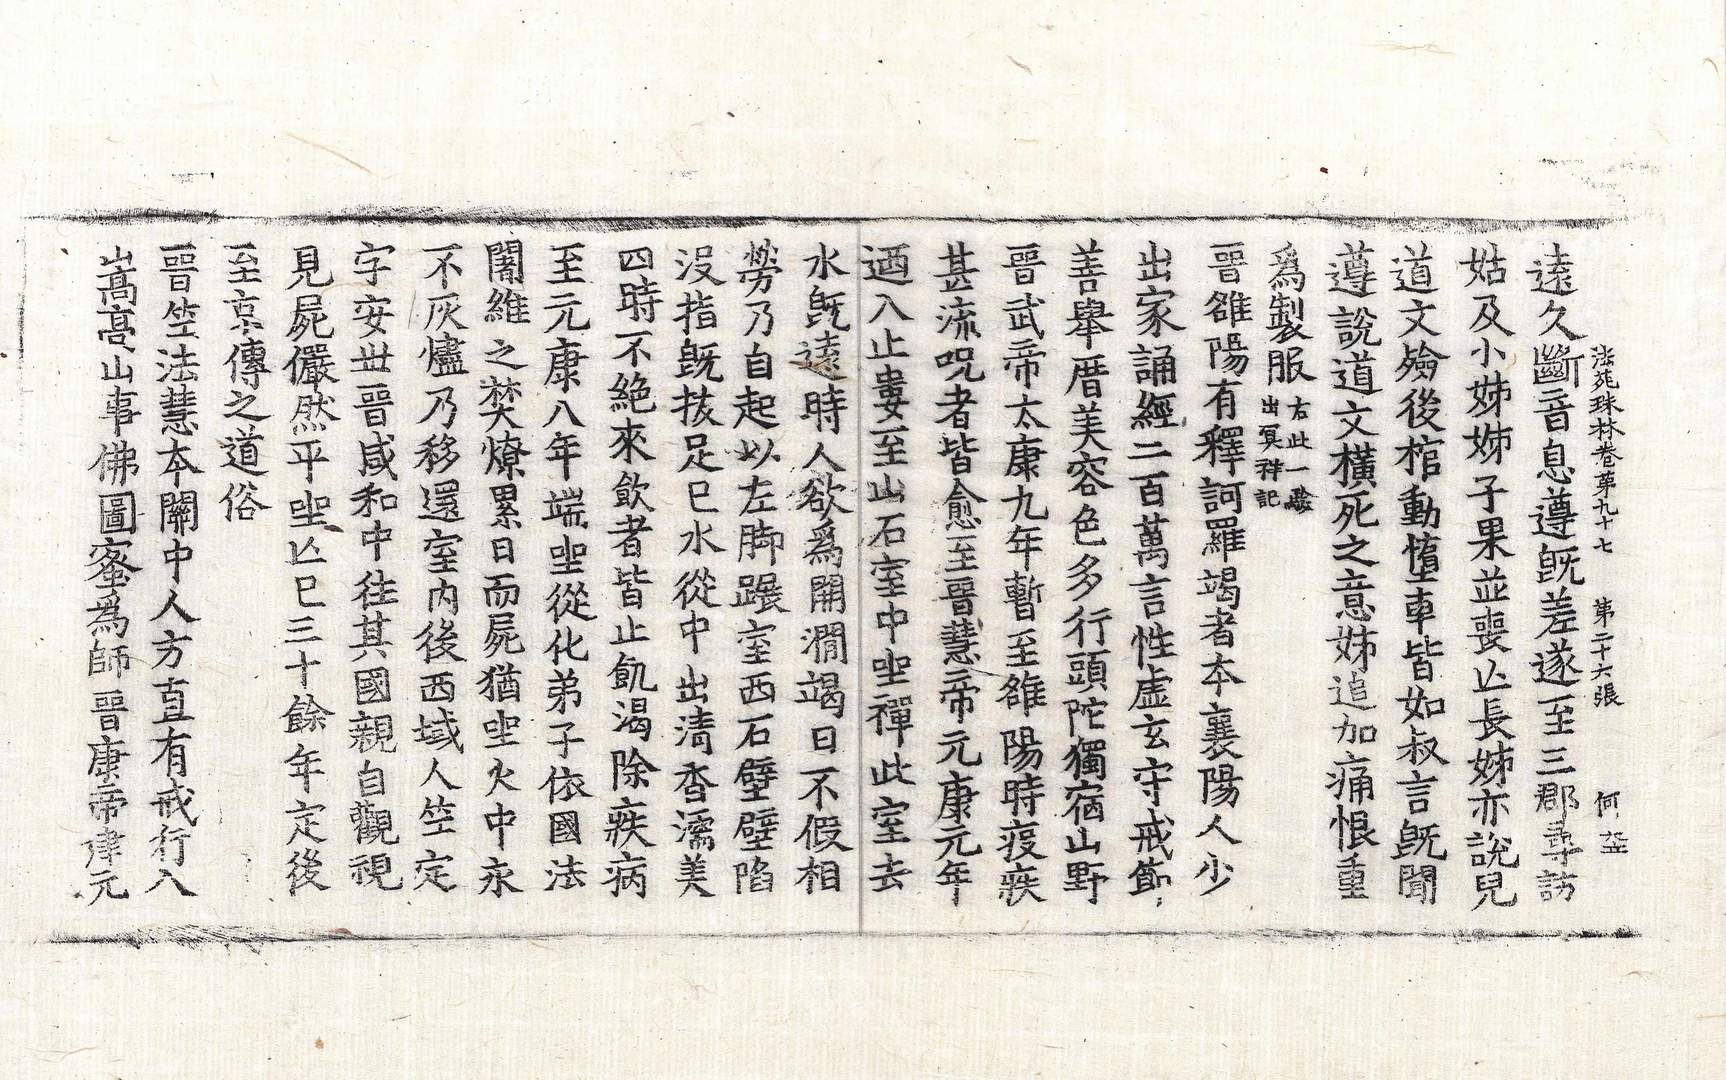 法苑珠林卷第九十七 第二十六張 何
遠久斷音息遵旣差遂至三郡尋訪
姑及小姊姊子果並喪亾長姊亦說兒
道文殮後棺動墮車皆如叔言旣聞
遵說道文橫死之意姊追加痛恨重
爲製服右此一驗出冥祥記
晉雒陽有釋訶羅竭者本襄陽人少
出家誦經二百萬言性虛玄守戒節
善舉厝美容色多行頭陀獨宿山野
晉武帝太康九年暫至雒陽時疫疾
甚流呪者皆愈至晉慧帝元康元年
迺入止婁至山石室中坐禪此室去
水旣遠時人欲爲開澗竭曰不假相
勞乃自起以左脚蹍室西石壁壁陷
沒指旣拔足已水從中出淸香濡美
四時不絕來飮者皆止飢渴除疾病
至元康八年端坐從化弟子依國法
闍維之焚燎累日而屍猶坐火中永
不灰燼乃移還室內後西域人竺定
字安世晉咸和中往其國親自觀視
見屍儼然平坐亾已三十餘年定後
至京傳之道俗
晉竺法慧本關中人方直有戒行入
嵩高山事佛圖蜜爲師晉康帝建元